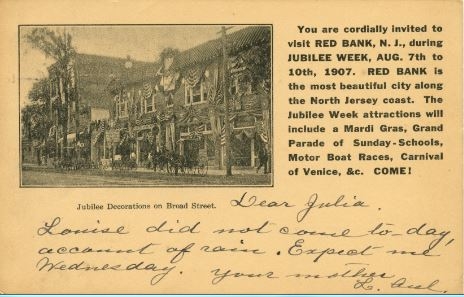 You are cordially invited to
visit RED BANK, N. J., during
JUBILEE WEEK, AUG. 7th to
10th, 1907. RED BANK is
the most beautiful city along
the North Jersey coast. The
Jubilee Week attractions will
include a Mardi Gras, Grand
Parade of Sunday-Schools,
Motor Boat Races, Carnival
of Venice, &c. COME!
Jubilee Decorations on Broad Street.
Dear Julia.
Louise did not come to-day,
account of rain. Expect me
Wednesday. Your mother
L.